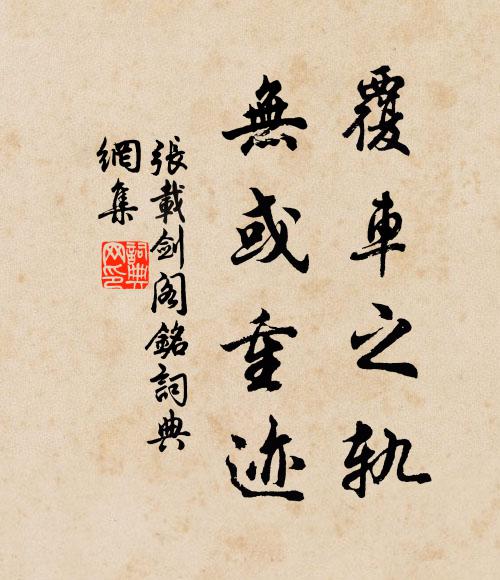 覆車之軌
無或重迹
張載劍阁銘詞典
網集
詞典
网印